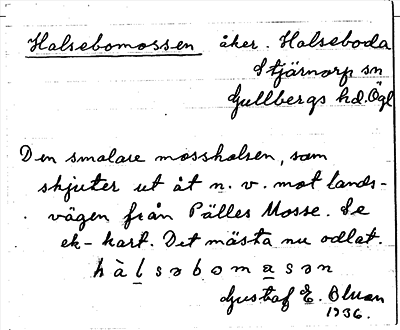 Halsebomossen åker. Halseboda
Stjärnorp sn
Gullbergs hd. Ögl
Den smalare mosshalsen, som
skjuter ut åt n. v. mot lands-
vägen från Pälles Mosse. Se
ek-kart. Det mästa nu odlat.
hàlsəbomasən
Gustaf E.
1936.